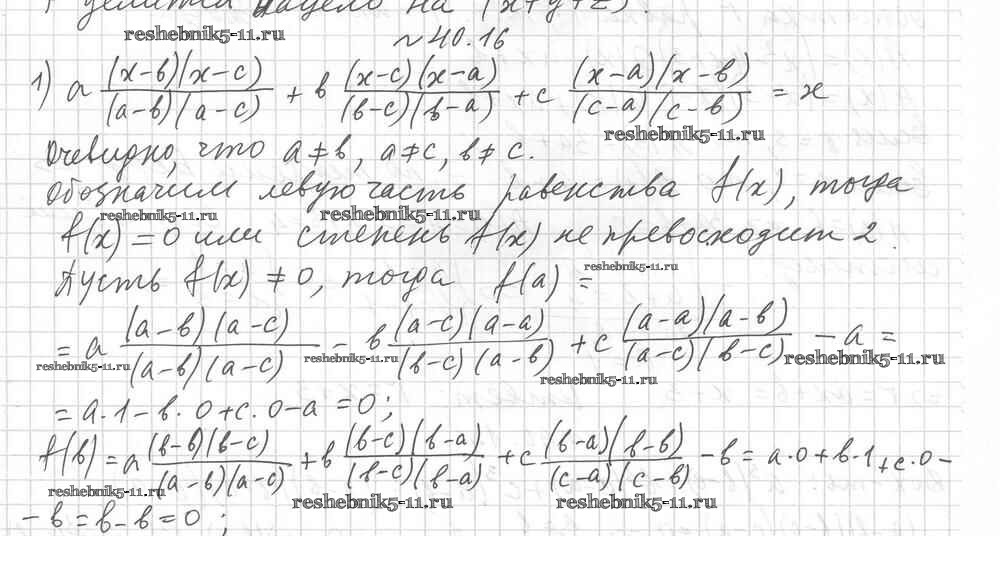 делится нацело на (x+y+z)
reshebnik5-11.ru
№40.16
1) a (x-b)(x-c)/(a-b)(a-c) + b (x-c)(x-a)/(b-c)(b-a) + c (x-a)(x-b)/(c-a)(c-b) = x
reshebnik5-11.ru
Очевидно, что a≠b, a≠c, b≠c.
Обозначим левую часть равенства f(x), тогда
reshebnik5-11.ru reshebnik5-11.ru
f(x)=0 или степень f(x) не превосходит 2.
reshebnik5-11.ru
Пусть f(x) ≠ 0, тогда f(a) =
= a (a-b)(a-c)/(a-b)(a-c) - b (a-c)(a-a)/(b-c)(a-b) + c (a-a)(a-b)/(a-c)(b-c) - a =
reshebnik5-11.ru reshebnik5-11.ru reshebnik5-11.ru
reshebnik5-11.ru
= a·1-b·0+c·0-a=0;
f(b)=a (b-b)(b-c)/(a-b)(a-c) + b (b-c)(b-a)/(b-c)(b-a) + c (b-a)(b-b)/(c-a)(c-b) - b = a·0+b·1+c·0-
reshebnik5-11.ru reshebnik5-11.ru reshebnik5-11.ru
-b=b-b=0;